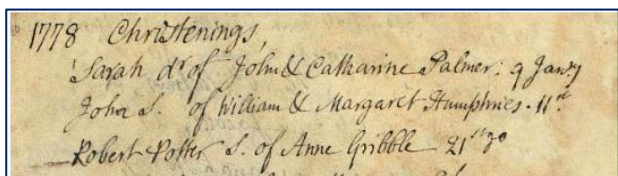 1778 Christenings,
Sarah dr of John & Catharine Palmer: 9 Jany
John S. of William & Margaret Humphries. 11th
Robert Potter S. of Anne Gribble 21st Do